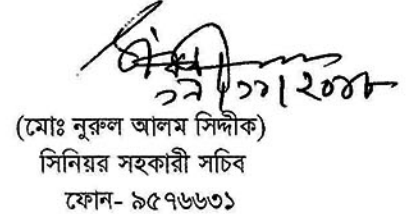 (মোঃ নুরুল আলম সিদ্দীক)
সিনিয়র সহকারী সচিব
ফোন- ৯৫৭৬৬৩১